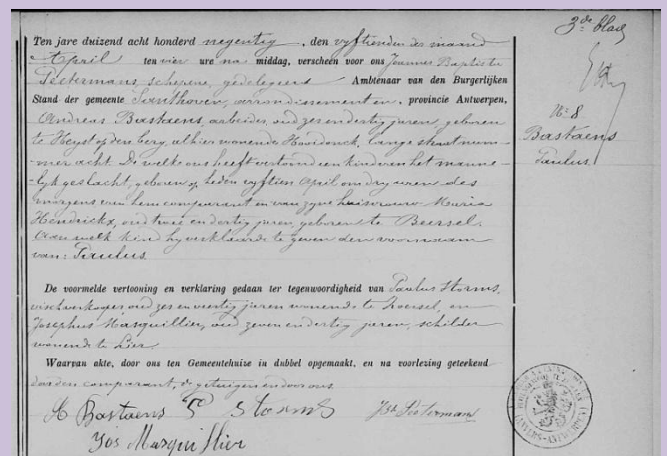 3de blad
Ten jare duizend acht honderd negentig, den vyftienden der maand
April ten vier ure na middag, verscheen voor ons Joannes Baptiste
Peetermans, schepene, gedelegeerd Ambtenaar van den Burgerlijken
Stand der gemeente Santhoven, arrondissement en provincie Antwerpen,
Andreas Bastaens, arbeider, oud zes en dertig jaren, geboren
te Heyst op den berg, alhier wonende Hooidonck, lange straat num-
mer acht. De welke ons heeft vertoond een kind van het manne-
lyk geslacht, geboren op heden vyftien April om dry uren des
morgens van hem comparant en van zyne huisvrouw Maria
Hendrickx, oud twee en dertig jaren, geboren te Beersel.
Aan welk kind hy verklaarde te geven den voornaam
van: Paulus
De voormelde vertooning en verklaring gedaan ter tegenwoordigheid van Paulus Storms,
oud zes en veertig jaren wonende te Zoersel, en
Josephus Masquillier, oud zeven en dertig jaren, schilder
wonende te Lier
Waarvan akte, door ons ten Gemeentehuize in dubbel opgemaakt, en na voorlezing geteekend
door den comparant, de getuigen en door ons
A Bastaens P Storms Jb Peetermans
Jos Masquillier
No 8
Bastaens
Paulus